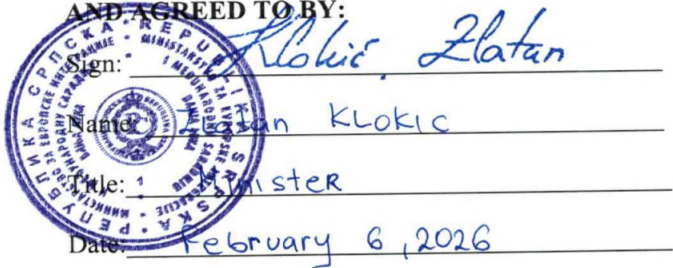 AND AGREED TO BY:
Sign: Klokić Zlatan
Name: Zlatan KLOKIC
Title: Minister
Date: February 6, 2026
РЕПУБЛИКА СРПСКА • REPUBLIKA SRPSKA